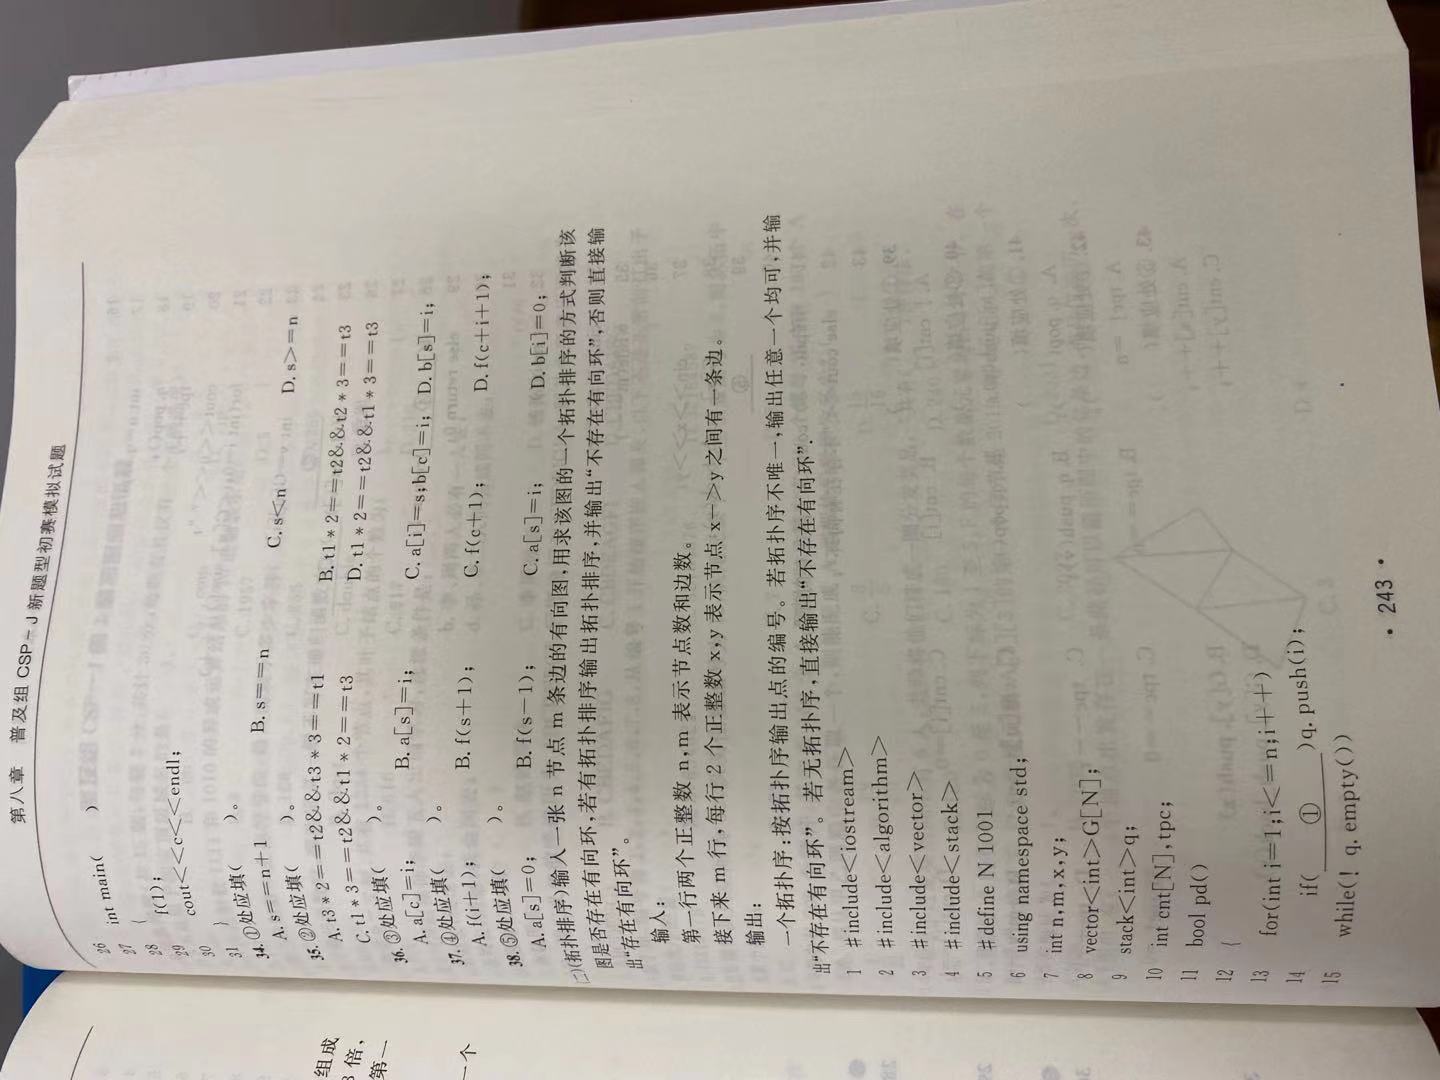 第八章 普及组 CSP-J 新题型初赛模拟试题
26 int main( )
27 {
28 f(1);
29 cout<<c<<endl;
30 }
31
34. ①处应填( )。
A. s==n+1 B. s==n C. s<n D. s>=n
35. ②处应填( )。
A. t3*2==t2&&t3*3==t1 B. t1*2==t2&&t2*3==t3
C. t1*3==t2&&t1*2==t3 D. t1*2==t2&&t1*3==t3
36. ③处应填( )。
A. a[c]=i; B. a[s]=i; C. a[i]=s;b[c]=i; D. b[s]=i;
37. ④处应填( )。
A. f(i+1); B. f(s+1); C. f(c+1); D. f(c+i+1);
38. ⑤处应填( )。
A. a[s]=0; B. f(s-1); C. a[s]=i; D. b[i]=0;
㈡(拓扑排序)输入一张 n 节点 m 条边的有向图,用求该图的一个拓扑排序的方式判断该
图是否存在有向环,若有拓扑排序输出拓扑排序,并输出“不存在有向环”,否则直接输
出“存在有向环”。
输入:
第一行两个正整数 n,m 表示节点数和边数。
接下来 m 行,每行 2 个正整数 x,y 表示节点 x->y 之间有一条边。
输出:
一个拓扑序:按拓扑序输出点的编号。若拓扑序不唯一,输出任意一个均可,并输
出“不存在有向环”。若无拓扑序,直接输出“不存在有向环”.
1 #include<iostream>
2 #include<algorithm>
3 #include<vector>
4 #include<stack>
5 #define N 1001
6 using namespace std;
7 int n,m,x,y;
8 vector<int>G[N];
9 stack<int>q;
10 int cnt[N],tpc;
11 bool pd()
12 {
13 for(int i=1;i<=n;i++)
14 if( ① )q.push(i);
15 while(! q.empty())
• 243 •
组成
倍,
第一
一个